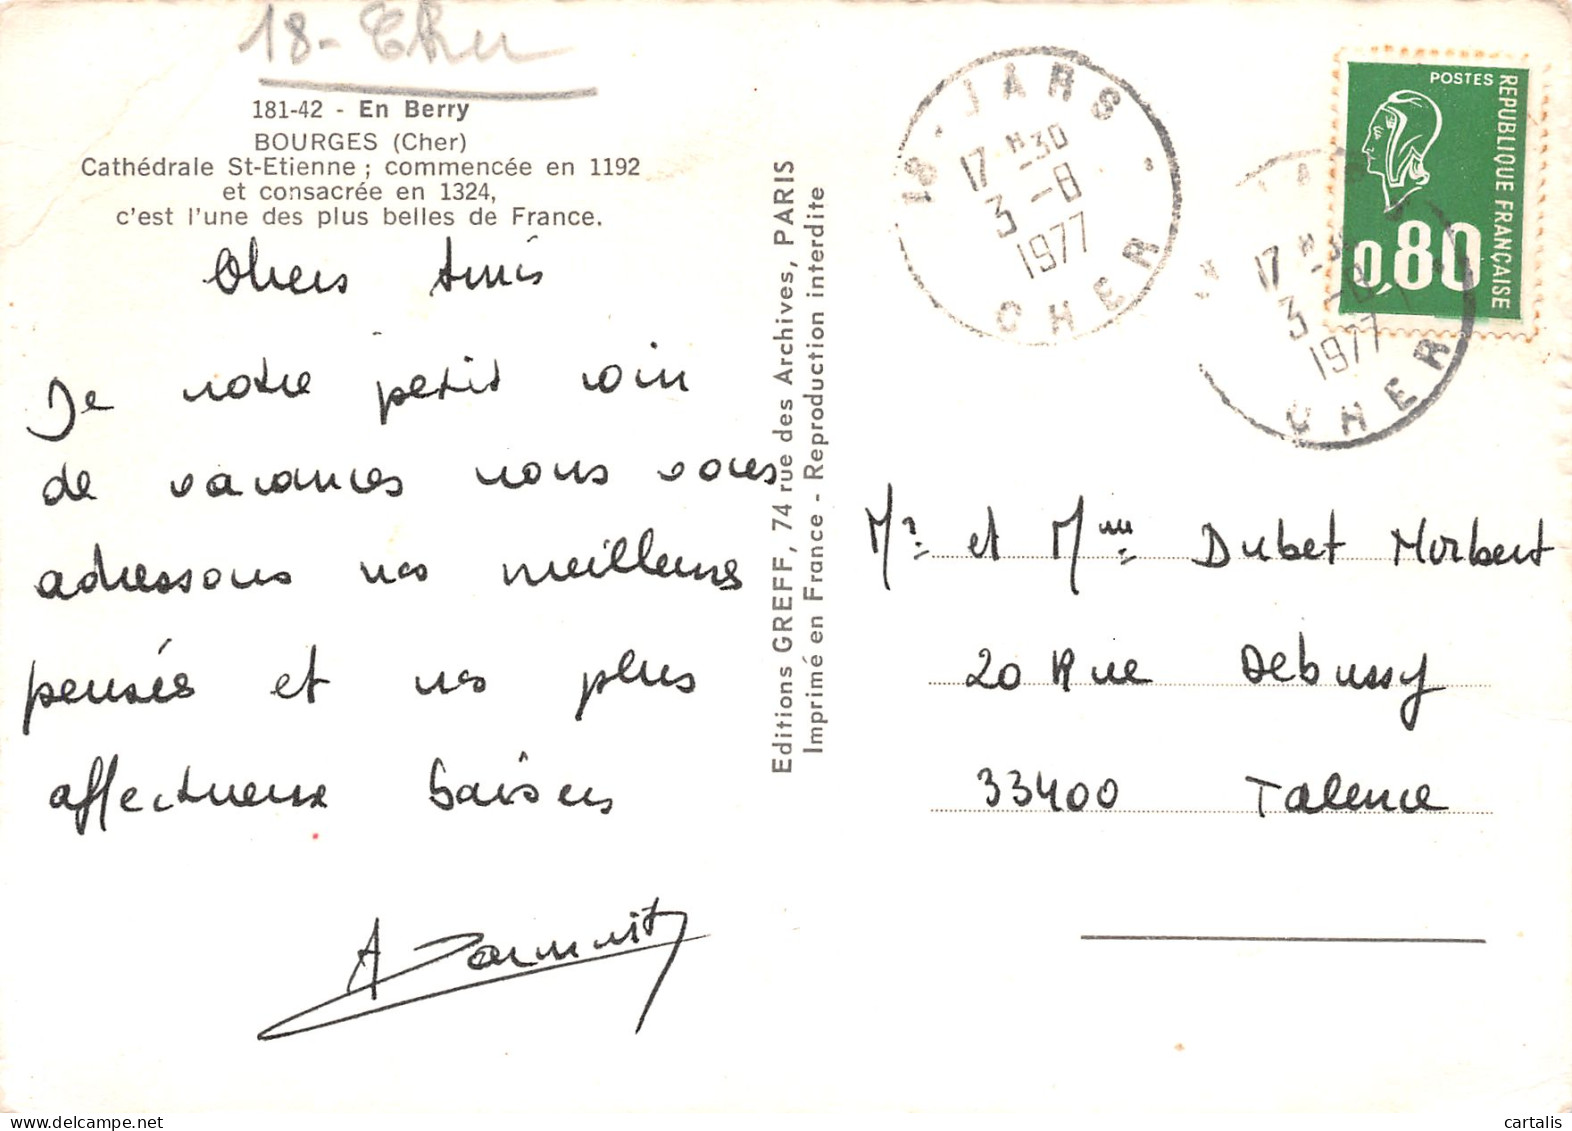 18 - Cher
181-42 - En Berry
BOURGES (Cher)
Cathédrale St-Etienne ; commencée en 1192
et consacrée en 1324,
c'est l'une des plus belles de France.
Chers Amis
De notre petit coin
de vacances nous vous
adressons nos meilleures
pensés et nos plus
affectueux baisers
A
Editions GREFF, 74 rue des Archives, PARIS
Imprimé en France - Reproduction interdite
18 - JARS
17 H 30
3 - 8
1977
CHER
POSTES
REPUBLIQUE FRANÇAISE
0,80
17 H 30
3 - 8
1977
CHER
Mr et Mme Dubet Norbert
20 Rue Debussy
33400 Talence
cartalis